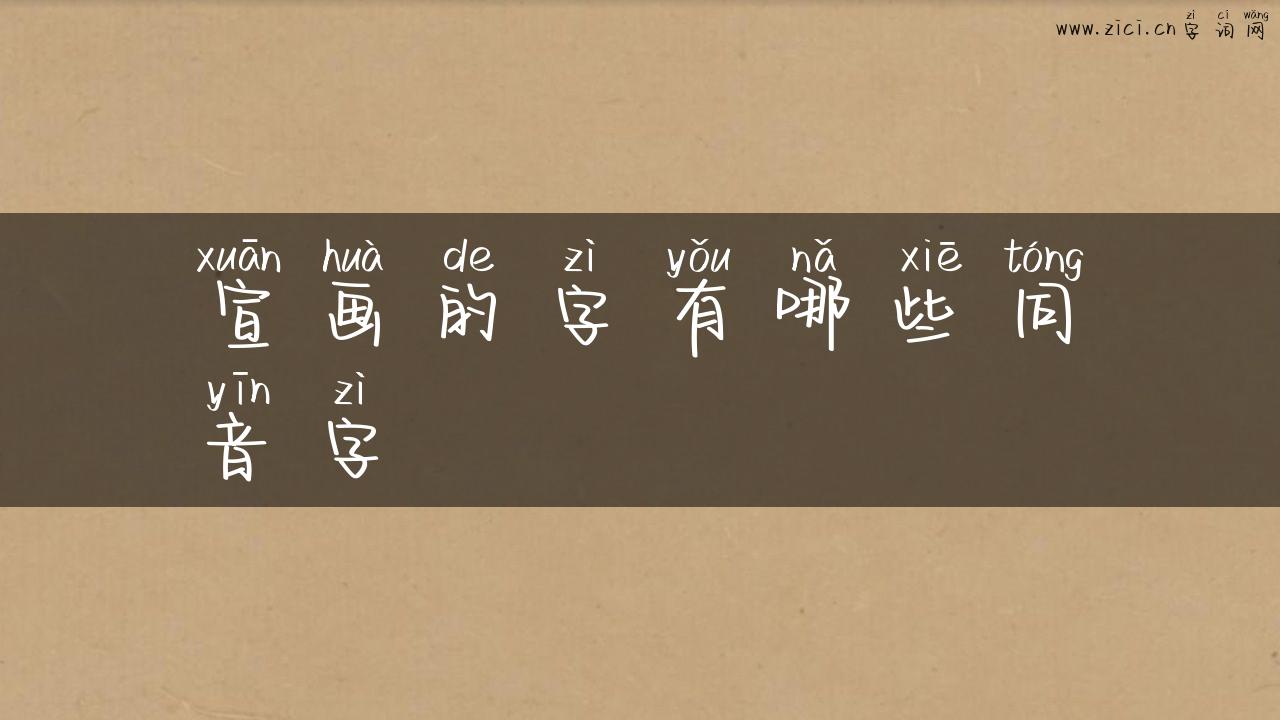 zì cí wǎng
www.zici.cn 字 词 网
xuān huà de zì yǒu nǎ xiē tóng
宣 画 的 字 有 哪 些 同
yīn zì
音 字